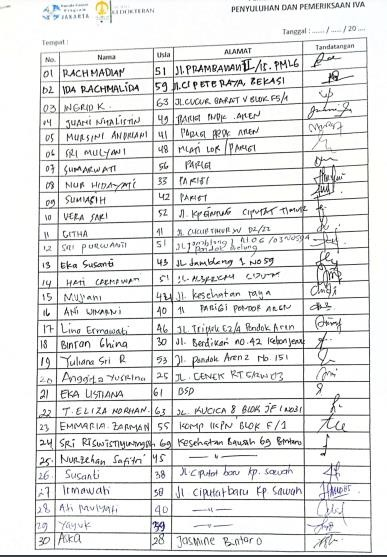 JAKARTA
KEDOKTERAN
PENYULUHAN DAN PEMERIKSAAN IVA
Tanggal : ...... / ...... / 20 ....
Tempat :
No. Nama Usia ALAMAT Tandatangan
01 RACHMADIAN 51 JL. PRAMBANAN
02 IDA RACHMALIDA 59 JL. CIPETE RAYA, BEKASI
03 INGRID K. 63 JL. CUCUR BARAT V BLOK F5/1
04 49 PARIGI PNDK. AREN
05 MURSINI ANDRIANI 41 PARIGI PNDK AREN
06 SRI MULYANI 48 MLATI LOR / PARIGI
07 SUMARWATI 56 PARIGI
08 NUR HIDAYATI 33 PARIGI
09 SUMIASIH 42 PARIGI
10 VERA SARI 52 CIPUTAT TIMUR
11 GITHA 41 JL CUCUR TIMUR D2/22
12 SRI PURWANTI 51 JL Jamblang
13 Eka Susanti 43 JL Jamblang 1 No 59
14 HATI 51
15 Mujiani JL. Kesehatan raya
16 ANI WINARNI 40 JL PARIGI PONDOK AREN
17 Lina Ermawati 46 JL. E2/4 Pondok Aren
18 Bintan Ghina 30 JL. Berdikari no. 42
19 Yuliana Sri R 53 JL. Pondok Aren 2 No 151
20 Anggita 25
21 EKA LISTIANA 61 BSD
22 T. ELIZA NORHAN. 63 JL. KUCICA 8 BLOK JF 1 NO31
23 EMMARIA. DARMAN 55 KOMP IKPN BLOK F/1
24 SRI 69 Kesehatan Bawah 69 Bintaro
25. Nurzehan Safitri 45 — " —
26. Susanti 38 JL Ciputat baru kp. sawah
27 Irmawati 38 JL Ciputat baru Kp. Sawah
28 40 — " —
29 Yayuk 39 — " —
30 Aska 28 Jasmine Bintaro